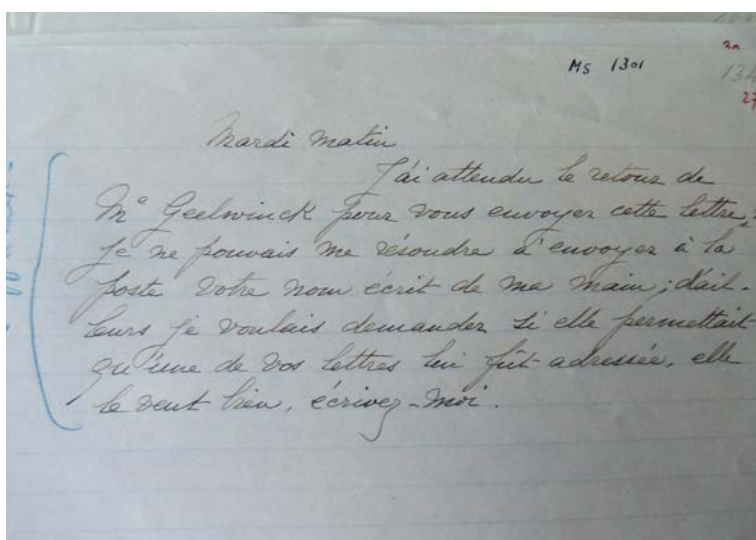 MS 1301
27
Mardi matin
J'ai attendu le retour de
Me Geelwinck pour vous envoyer cette lettre,
je ne pouvais me résoudre à envoyer à la
poste votre nom écrit de ma main; d'ail-
leurs je voulais demander si elle permettait
qu'une de vos lettres lui fût adressée, elle
le veut bien, écrivez-moi.